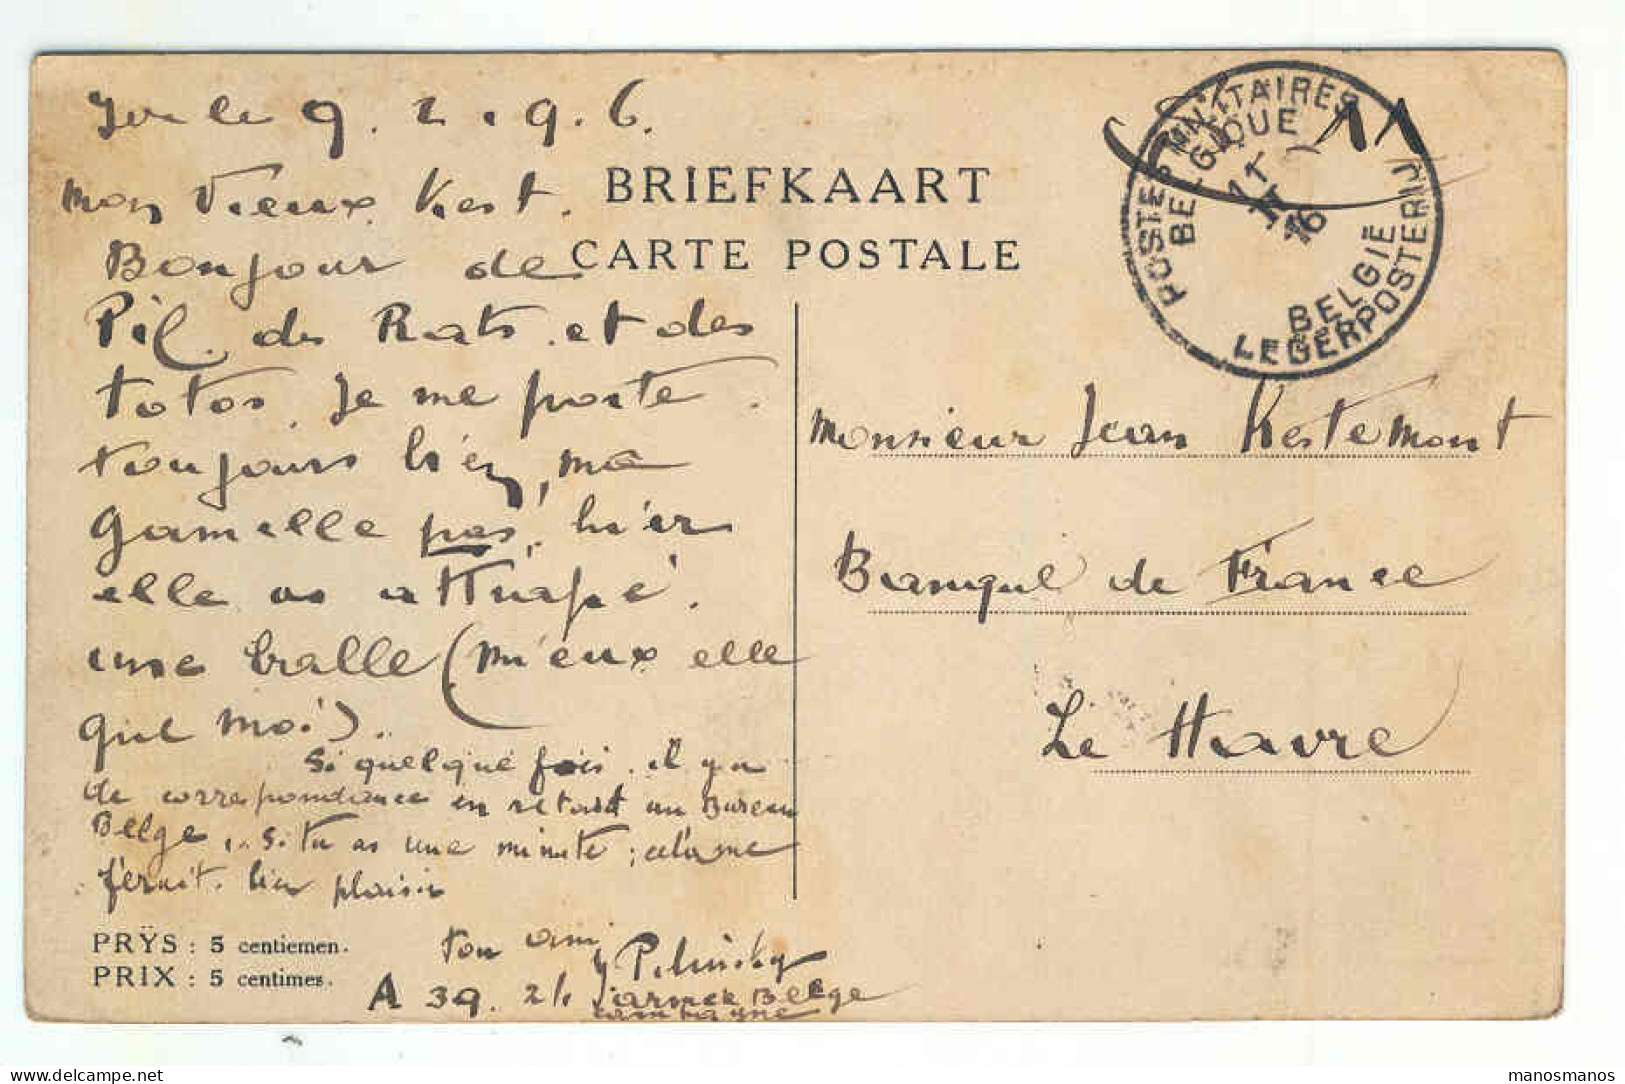 le 9.2.96.
Mon Vieux Kest.
Bonjour de
Pil. des Rats. et des
totos. Je me porte
toujours bien, ma
gamelle pas, hier
elle as attrapé.
une balle (mieux elle
que moi)..
Si quelque fois. il y a
de correspondance en retard au Bureau
Belge, .. si tu as une minute ; cela me
ferait. bien plaisir
ton ami
Pilinsky
A 39. 2/1 armée Belge
campagne
PRŸS : 5 centiemen.
PRIX : 5 centimes.
BRIEFKAART
CARTE POSTALE
POSTES MILITAIRES
BELGIQUE
11
II
16
BELGIË
LEGERPOSTERIJ
Monsieur Jean Kestemont
Banque de France
Le Havre
www.delcampe.net
manosmanos